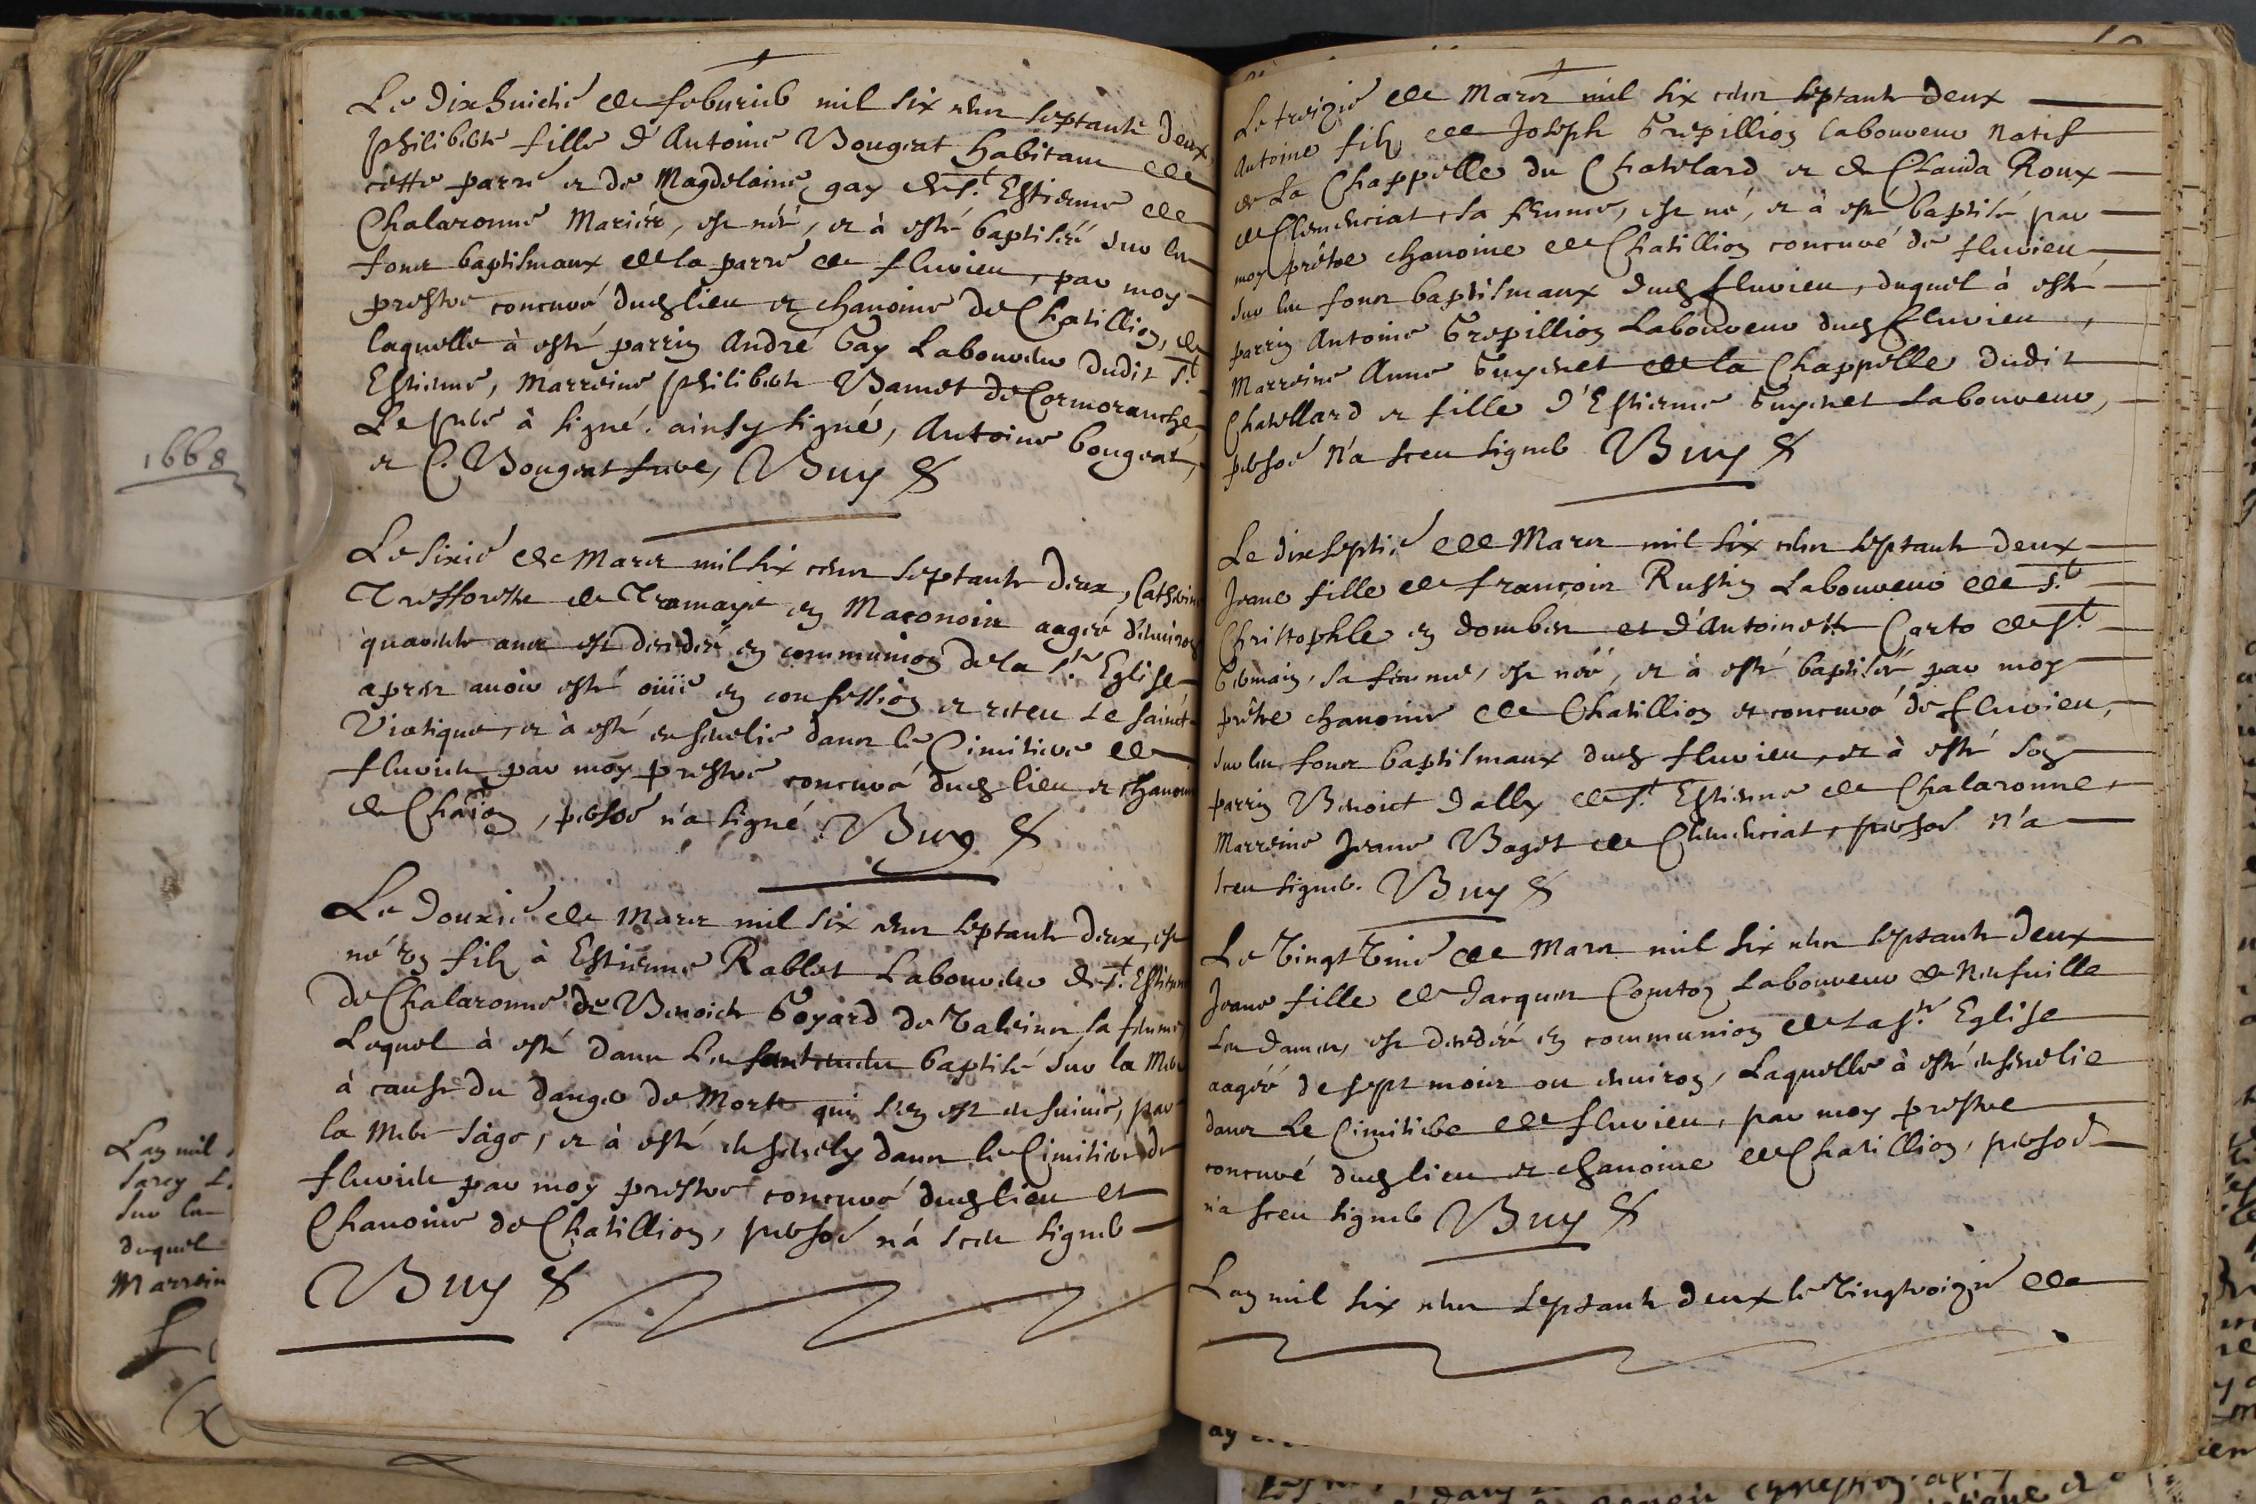 Le dixhuictie de feburier mil six cens septante deux
philiberte fille d'Antoine Bougeat habitant de
cette parre et de Magdelaine gay de St. Estienne de
Chalaronne Mariés, est née, et à esté baptisée sur les
fons baptismaux de la parre de fluvieu, par moy
prestre concuré dud lieu et chanoine de Chatillion, de
laquelle à esté parrin André Gay Laboureur dudit St.
Estienne, Marreine philiberte Bamet de Cormoranche
Le pere à signé. ainsy signé, Antoine bougeat,
et C. Bougeat Buy
1668
Le sixie de Mars mil six cens septante deux, Catherine
Treffort de Tramaye en Maconois aagée d'environ
quarente ans est decedée en communion de la Ste. Eglise
apres avoir esté ouïe en confession et receu Le sainct
Viatique, et à esté ensevelie dans le Cimitiere de
fluvieu par moy prestre concuré dud lieu et chanoine
de Chaion, persoe n'a signé Buy
Le douxie de Mars mil six cens septante deux, est
né un filz à Estienne Rablet Laboureur de St. Estienne
de Chalaronne de Benoicte Goyard de Taleins sa femme
Lequel à esté dans baptisé sur la Mere
à cause du danger de Mort qui s'en est ensuivie, par
la Mere sage, et à esté ensevely dans le Cimitiere de
fluvieu par moy prestre concuré dud lieu et
Chanoine de Chatillion, persoe n'à sceu signer
Buy
Le treizie de Mars mil six cens septante deux
Antoine filz de Joseph Grepillion laboureur natif
de La Chappelle du Chatelard et de Clauda Roux
de Clemenciat, sa femme, est né, et à esté baptisé par
moy prêtre chanoine de Chatillion concuré de fluvieu,
sur les fons baptismaux dud fluvieu, duquel à esté
parrin Antoine Grepillion Laboureur dud fluvieu,
Marreine Anne Guyenet de la Chappelle dudit
Chatellard et fille d'Estienne Guyenet Laboureur,
persoe n'a sceu signer Buy
Le dixseptie de Mars mil six cens septante deux
Jeane fille de françois Rustin Laboureur de St.
Christophle en dombes et d'Antoinette Carto de St.
Germain, sa femme, est née, et à esté baptisée par moy
prêtre chanoine de Chatillion et concuré de fluvieu,
sur les fons baptismaux dud fluvieu, et à esté son
parrin Benoict Dally de St. Estienne de Chalaronne,
Marreine Jeane Baget de Clemenciat, persoe n'a
sceu signer. Buy
Le vingt unie de Mars mil six cens septante deux
Jeane fille de Jacques Comton Laboureur de Neufville
Les dames, est decedée en communion de La Ste. Eglise
aagée de sept mois ou environ, Laquelle à esté ensevelie
dans Le Cimitiere de fluvieu, par moy prestre
concuré dud lieu et chanoine de Chatillion, persoe
n'a sceu signer Buy
L'an mil six cens septante deux le vingtroizie de